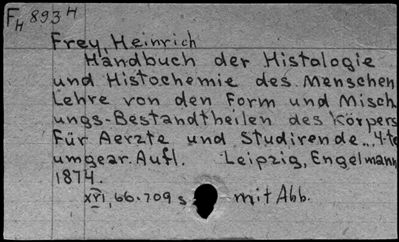 FH 893 H
Frey, Heinrich
Handbuch der Histologie
und Histochemie des Menschen
Lehre von den Form und Misch
ungs-Bestandtheilen des Körpers
Für Aerzte und Studirende.. 4-te
umgear. Aufl. Leipzig, Engelmann
1874.
XVI, 66.709 s. mit Abb.